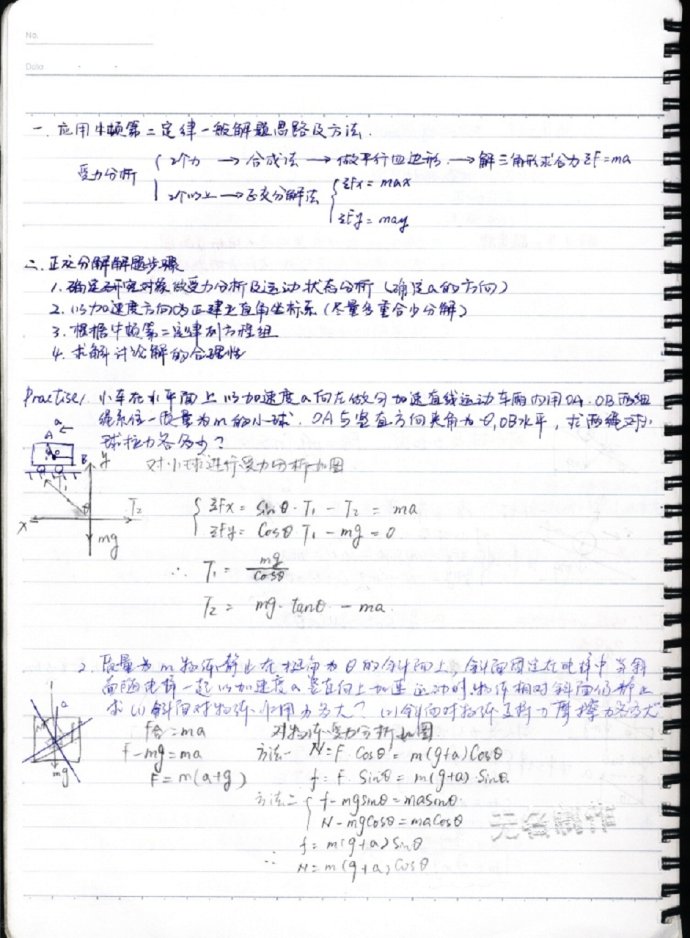 No.
Date
一. 应用牛顿第二定律一般解题思路及方法.
受力分析 { 2个力 → 合成法 → 做平行四边形 → 解三角形求合力 ΣF=ma
2个以上 → 正交分解法 { ΣFx = max
ΣFy = may
二. 正交分解解题步骤
1. 确定研究对象做受力分析及运动状态分析 (确定a的方向)
2. 以加速度方向为正建立直角坐标系 (尽量多重合少分解)
3. 根据牛顿第二定律列方程组
4. 求解讨论解的合理性
Practise 1. 小车在水平面上以加速度a向左做匀加速直线运动车厢内用OA、OB两细
绳系住一质量为m的小球. OA与竖直方向夹角为θ, OB水平, 求两绳对小
球拉力各多少?
对小球进行受力分析如图
a
A
B
y
T1
θ
T2
x
mg
{ ΣFx = Sinθ · T1 - T2 = ma
ΣFy = Cosθ T1 - mg = 0
∴ T1 = mg/Cosθ
T2 = mg · tanθ - ma.
2. 质量为m物体静止在倾角为θ的斜面上, 斜面固定在电梯中, 当斜
面随电梯一起以加速度a竖直向上加速运动时, 物体相对斜面仍静止
求 (1) 斜面对物体作用力多大? (2) 斜面对物体支持力摩擦力各多大
a
mg
F合 = ma
F-mg = ma
F = m(a+g)
对物体受力分析如图
方法一 N = F · Cosθ = m(g+a) Cosθ
f = F · Sinθ = m(g+a) · Sinθ.
方法二 { f - mgsinθ = masinθ
N - mgCosθ = maCosθ
f = m(g+a) Sinθ
∴ N = m(g+a) Cosθ